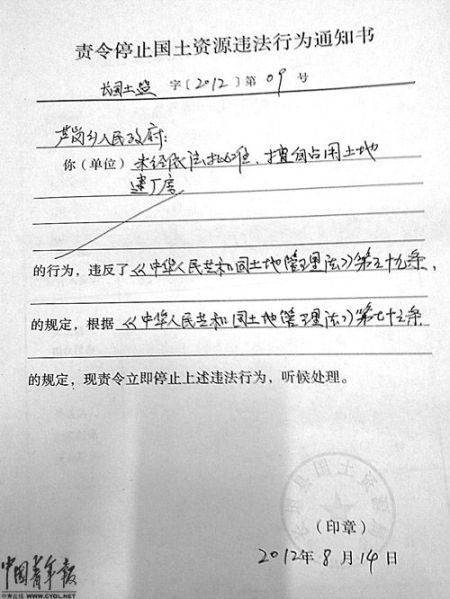 责令停止国土资源违法行为通知书
长国土监 字〔2012〕第 09 号
芦岗乡人民政府:
你（单位）未经依法批准、擅自占用土地
建厂房
的行为，违反了《中华人民共和国土地管理法》第五十九条，
的规定，根据《中华人民共和国土地管理法》第七十六条
的规定，现责令立即停止上述违法行为，听候处理。
长垣县国土资源局
（印章）
2012年8月14日
中国青年报
中青在线 WWW.CYOL.NET